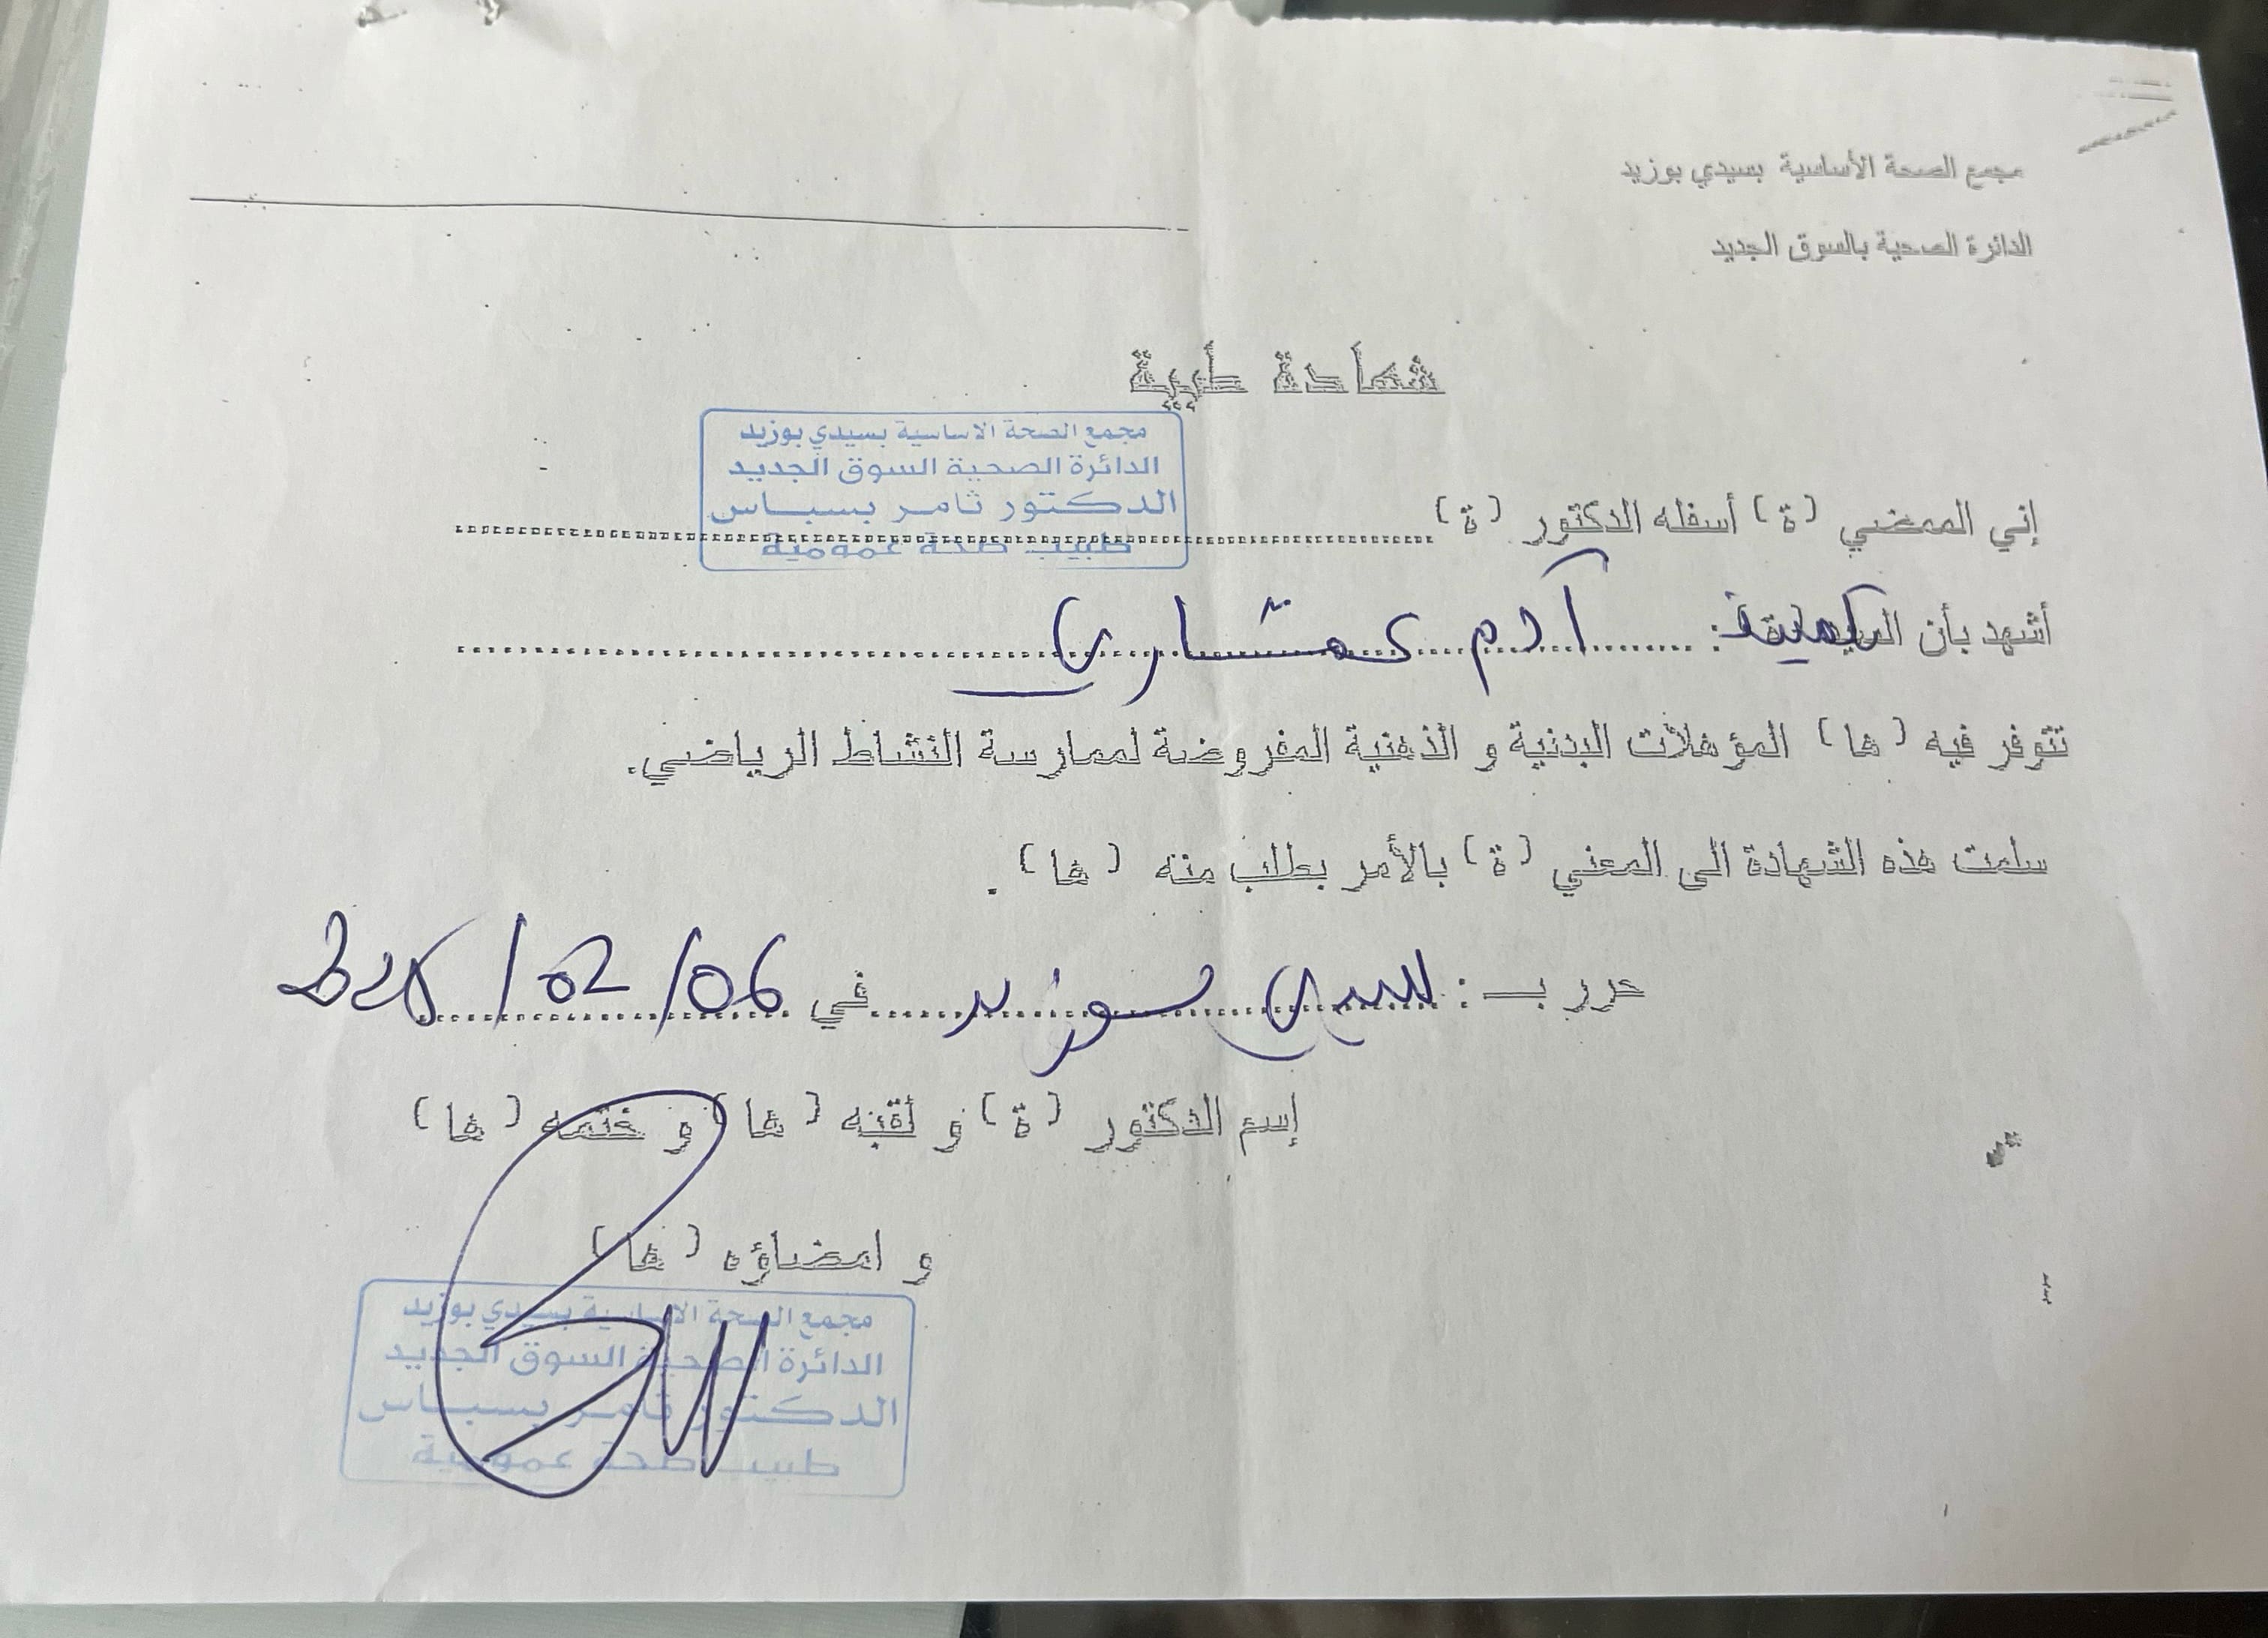 مجمع الصحة الأساسية بسيدي بوزيد
الدائرة الصحية بالسوق الجديد
شهادة طبية
مجمع الصحة الاساسية بسيدي بوزيد
الدائرة الصحية السوق الجديد
الدكتور ثامر بسباس
طبيب صحة عمومية
إني الممضي (ة) أسفله الدكتور (ة)
أشهد بأن : آدم عمشاري
تتوفر فيه (ها) المؤهلات البدنية و الذهنية المفروضة لممارسة النشاط الرياضي.
سلمت هذه الشهادة الى المعني (ة) بالأمر بطلب منه (ها).
حرر بـ : سيدي بوزيد في 06/02/
إسم الدكتور (ة) و لقبه (ها) و ختمه (ها)
و امضاؤه (ها)
مجمع الصحة الاساسية بسيدي بوزيد
الدائرة الصحية السوق الجديد
الدكتور ثامر بسباس
طبيب صحة عمومية